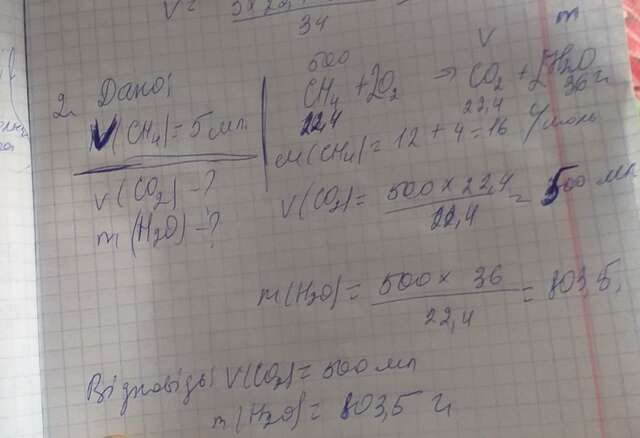 V =
34
2. Дано:
V(CH4) = 5 мл.
V(CO2) - ?
m(H2O) - ?
500 V m
CH4 + 2O2 → CO2 + 2H2O
22,4 22,4 36 г
M(CH4) = 12 + 4 = 16 г/моль
V(CO2) = 500 × 22,4 / 22,4 = 500 мл
m(H2O) = 500 × 36 / 22,4 = 803,5
Відповідь: V(CO2) = 500 мл
m(H2O) = 803,5 г